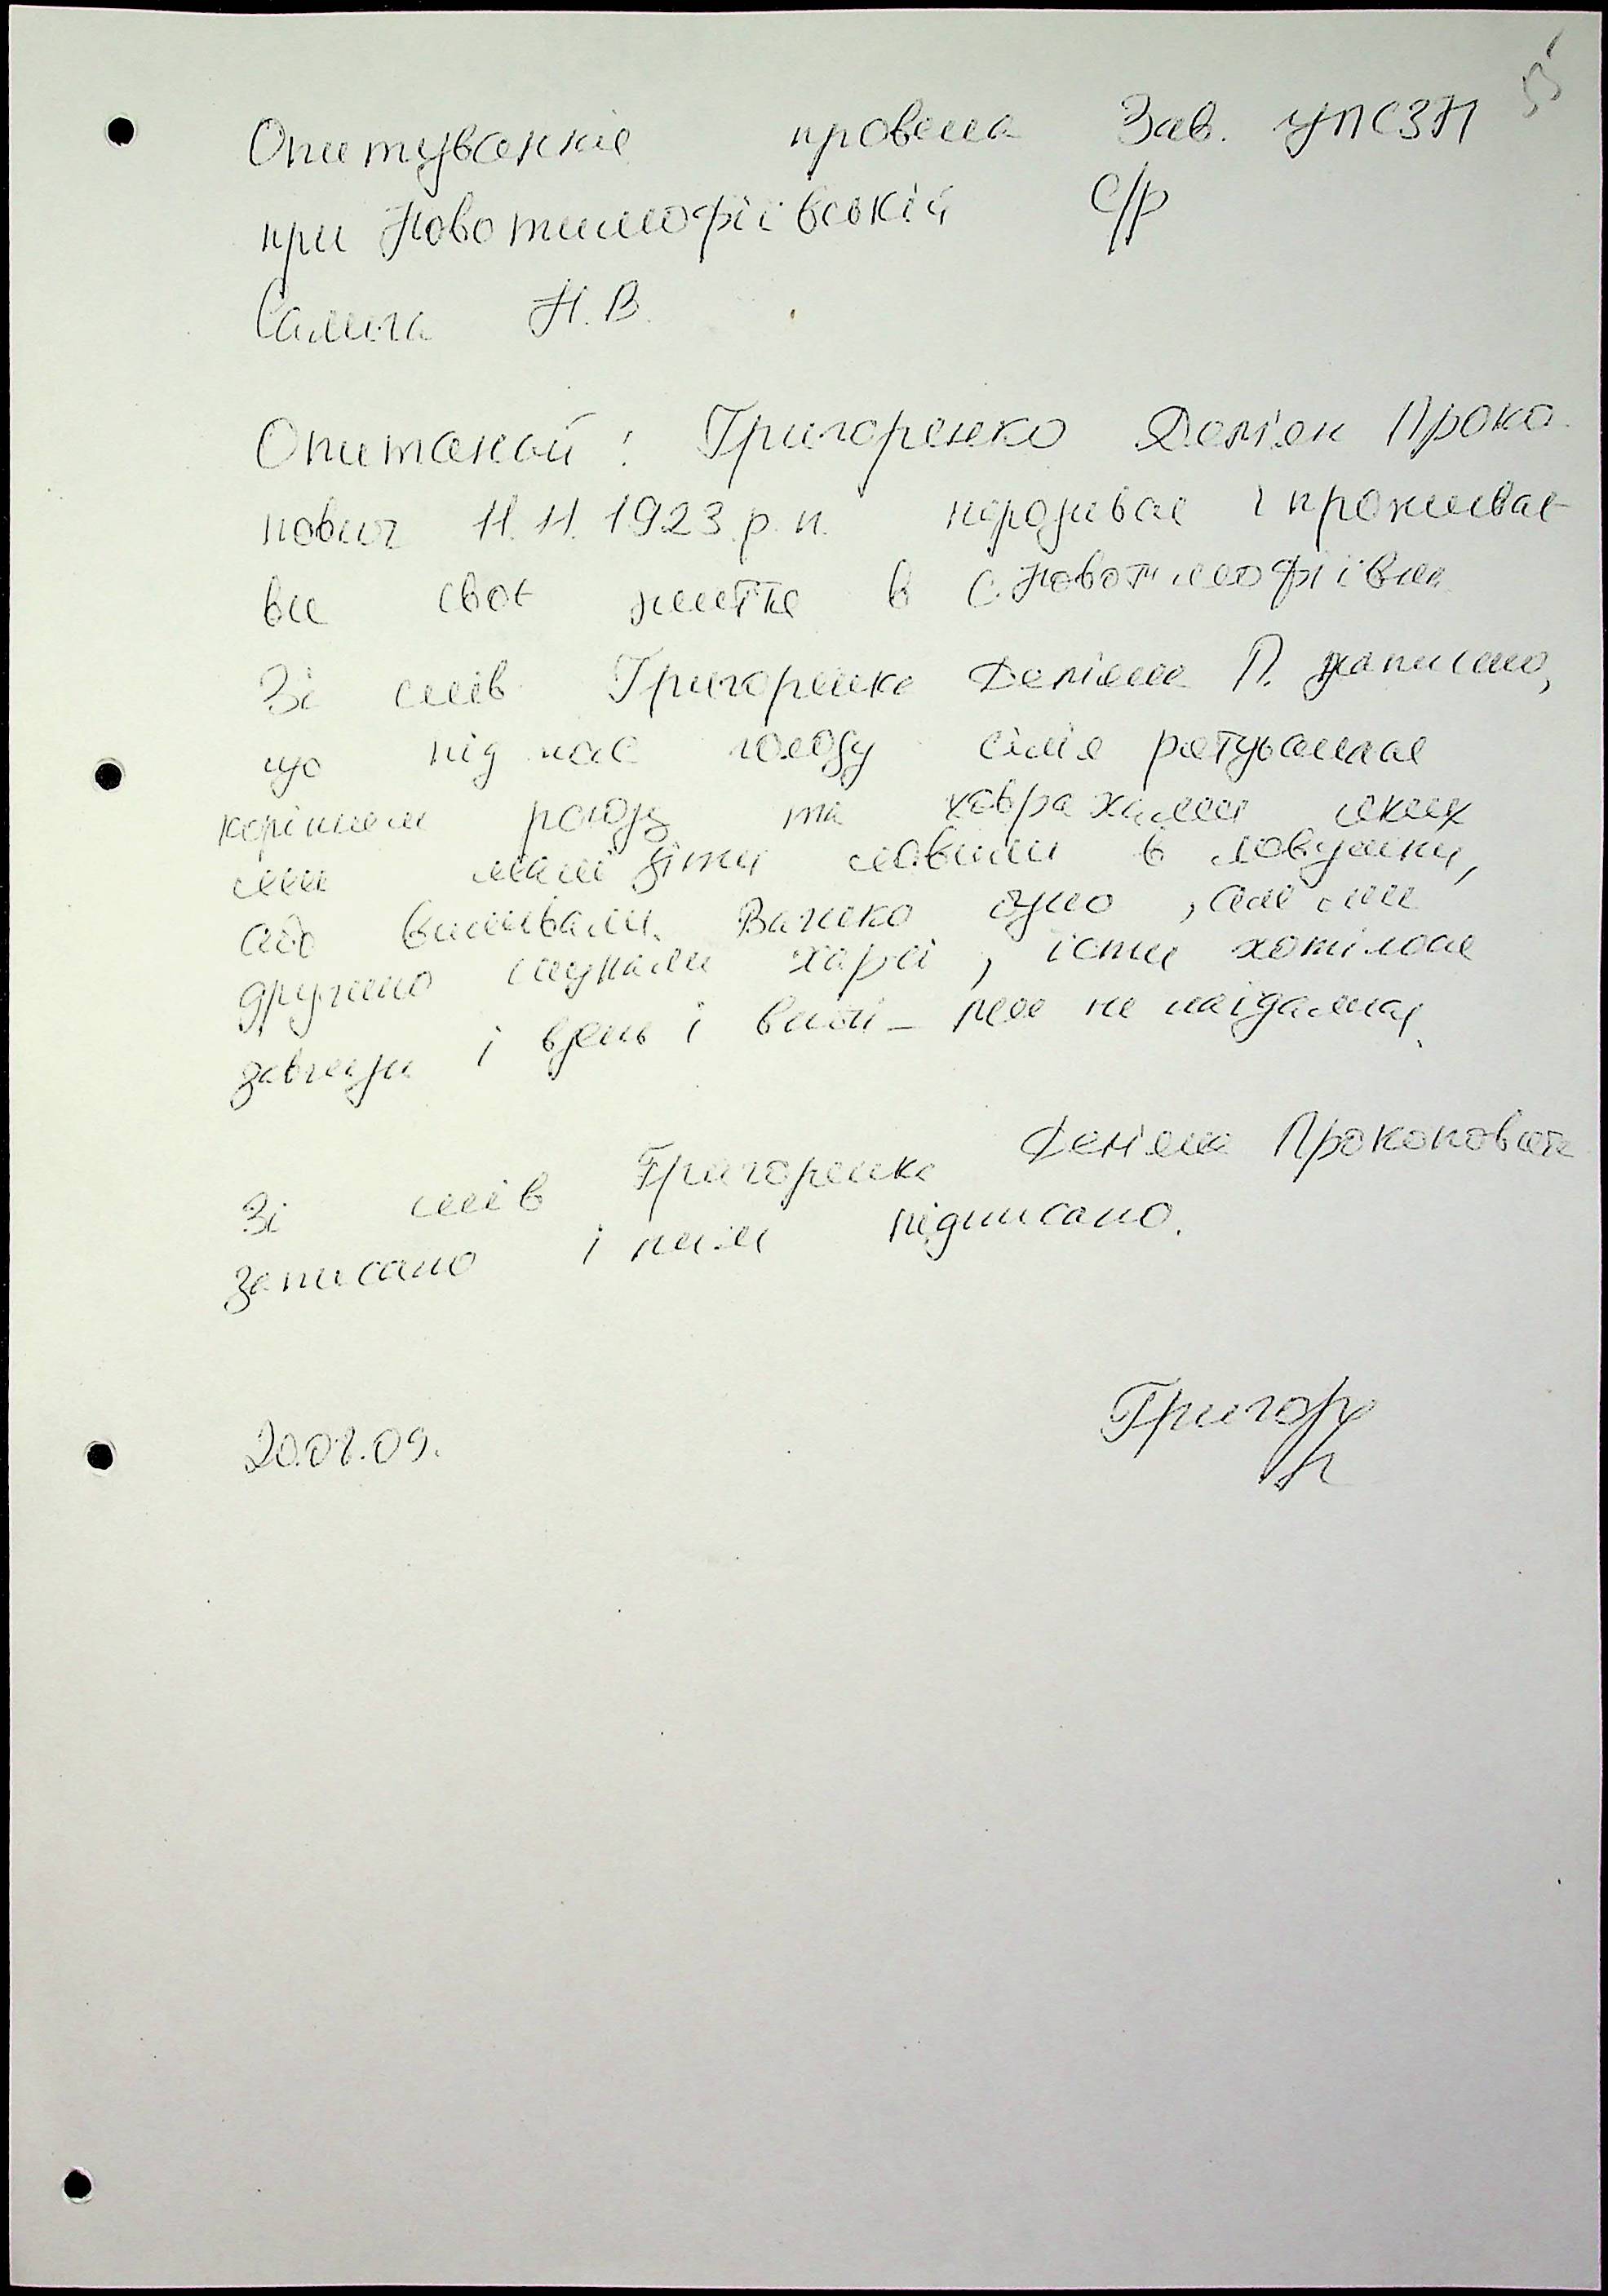 5
Опитування провела Зав. УПСЗН
при Новотимофіївській с/р
Салига Н.В.
Опитаний: Григоренко Дем'ян Проко
пович 11.11.1923 р.н. народився і проживає
все своє життя в с. Новотимофіївка
Зі слів Григоренка Дем'яна П. записано,
що під час голоду сім'я рятувалася
корінням рогозу та ховрахами яких
ми малі діти ловили в ловушки,
або виливали. Важко було, але ми
дружно шукали харчі, їсти хотілося
завжди і вдень і вночі – ми не наїдались.
Зі слів Григоренка Дем'яна Прокоповича
записано і ним підписано.
20.08.09. Григор